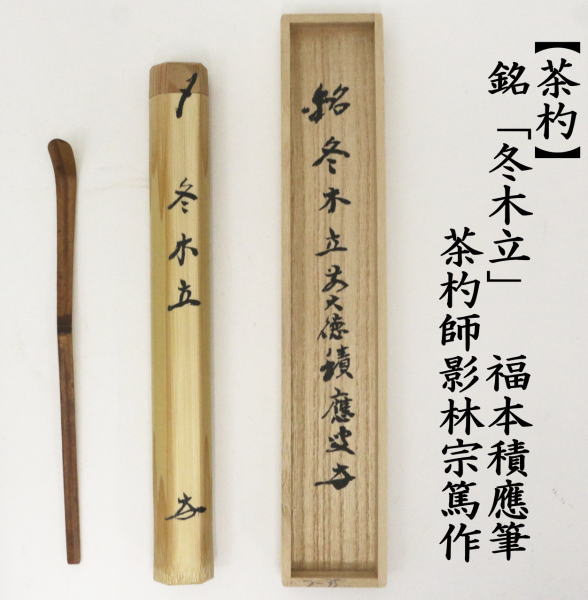 【茶杓】
銘 「冬木立」 福本積應筆
茶杓師影林宗篤作
銘 冬木立 前大徳積應叟
〆
冬木立